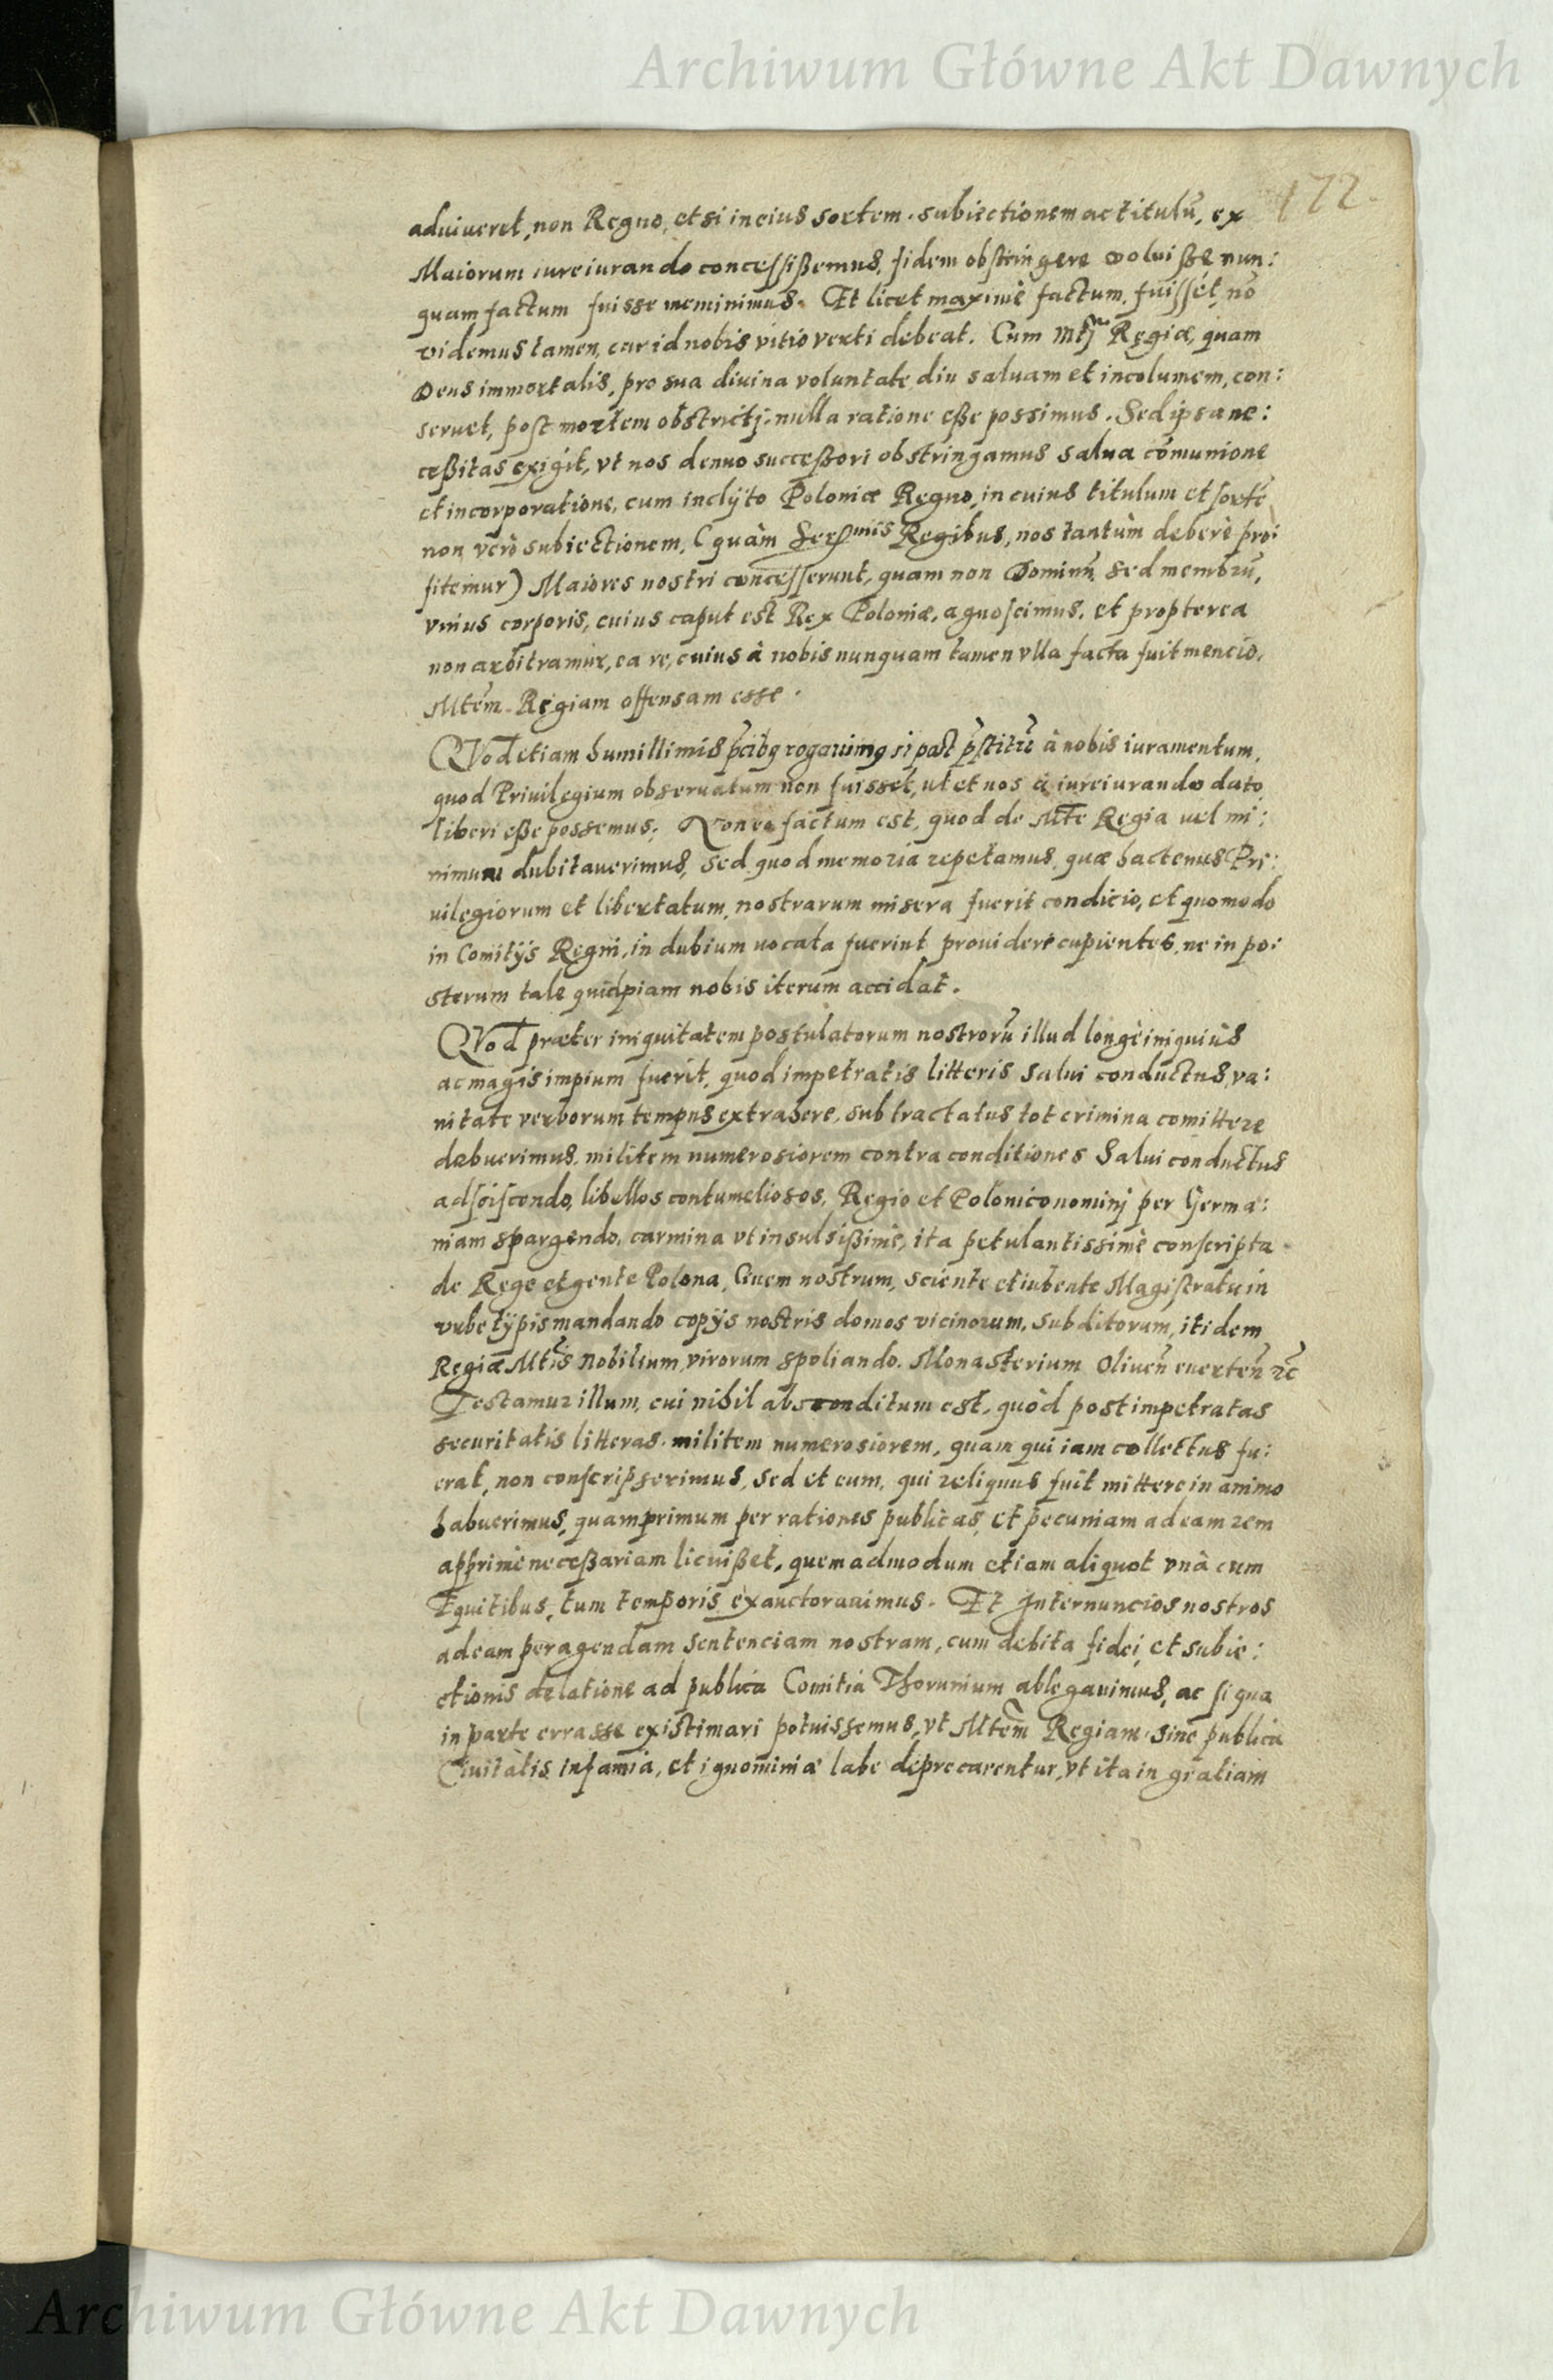 Archiwum Główne Akt Dawnych
172.
adviveret, non Regno, etsi in eius sortem. subiectionem ac titulū, ex
Maiorum iureiurando concessißemus, fidem obstringere voluiße nun:
quam factum fuisse meminimus. Et licet maximè factum, fuisset, nō
videmus tamen, cur id nobis vitio verti debeat. Cum Mtj Regiæ, quam
Deus immortalis, pro sua divina voluntate diu saluam et incolumem, con:
seruet, post mortem obstrictj, nulla ratione eße possimus. Sed ipsa ne:
ceßitas exigit, vt nos denuo succeßori obstringamus salua cōmunione
et incorporatione, cum inclÿto Poloniæ Regno, in cuius titulum et sortē
non verò subiectionem, (quàm Sermis Regibus, nos tantùm deberè pro:
fitemur) Maiores nostri concesserunt, quam non Dominū sed membrū,
vnius corporis, cuius caput est Rex Poloniæ, agnoscimus. et propterea
non arbitramur, ea re, cuius à nobis nunquam tamen vlla facta fuit mencio,
Mtēm Regiam offensam esse.
QVod etiam humillimis p̄cibꝫ rogauimꝫ si post p̄stitū à nobis iuramentum,
quod Priuilegium obseruatum non fuisset, ut et nos à iureiurando dato
liberi eße possemus. Non eo factum est, quod de Mte Regia uel mi:
nimum dubitauerimus, sed quod memoria repetamus, quæ hactenus Pri:
uilegiorum et libertatum, nostrarum misera fuerit condicio, et quomodo
in Comitÿs Regni, in dubium uocata fuerint prouidere cupientes, ne in po:
sterum tale quidpiam nobis iterum accidat.
QVod præter iniquitatem postulatorum nostrorū illud longè iniquius
ac magis impium fuerit, quod impetratis litteris Salui conductus, va:
nitate verborum tempus extrahere, sub tractatus tot crimina comittere
debuerimus, militem numerosiorem contra conditiones Salui conductus
adsciscendo, libellos contumeliosos, Regio et Polonico nominj per Germa:
niam spargendo, carmina vt insulsißimè, ita petulantissimè conscripta
de Rege et gente Polona, Quem nostrum, sciente et iubente Magistratu in
vrbe tÿpis mandando copÿs nostris domos vicinorum, Subditorum, itidem
Regiæ Mtis Nobilium, virorum spoliando. Monasterium Oliuen̄ euerten̄ ꝛc
Testamur illum, cui nihil absconditum est, quòd post impetratas
securitatis litteras, militem numerosiorem, quam qui iam collectus fu:
erat, non conscripserimus, sed et eum, qui reliquus fuit mittere in animo
habuerimus, quamprimum per rationes publicas, et pecuniam ad eam rem
apprimè neceßariam licuißet, quemadmodum etiam aliquot vnà cum
Equitibus, tum temporis exauctorauimus. Et Internuncios nostros
ad eam peragendam Sentenciam nostram, cum debita fidei et subie:
ctionis delatione ad publica Comitia Thorunium ablegauimus, ac si qua
in parte errasse existimari potuissemus, vt Mtem̄ Regiam sine publica
Ciuitatis infamia, et ignominiæ labe deprecarentur, vt ita in gratiam
Archiwum Główne Akt Dawnych